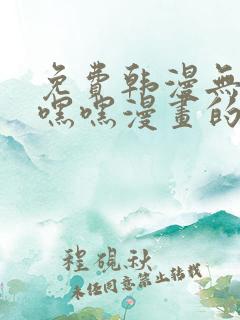 免費韩漫無
嘿嘿漫畫的
程硯秋
未经同意禁止转载